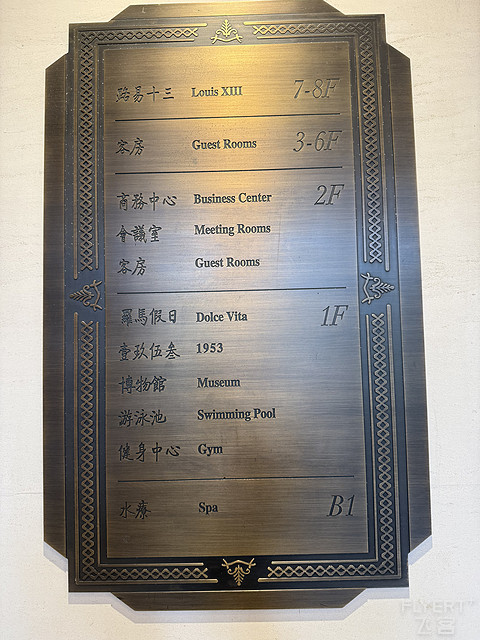 路易十三 Louis XIII 7-8F
客房 Guest Rooms 3-6F
商務中心 Business Center 2F
會議室 Meeting Rooms
客房 Guest Rooms
羅馬假日 Dolce Vita 1F
壹玖伍叁 1953
博物館 Museum
游泳池 Swimming Pool
健身中心 Gym
水療 Spa B1
FLYERT
飞客